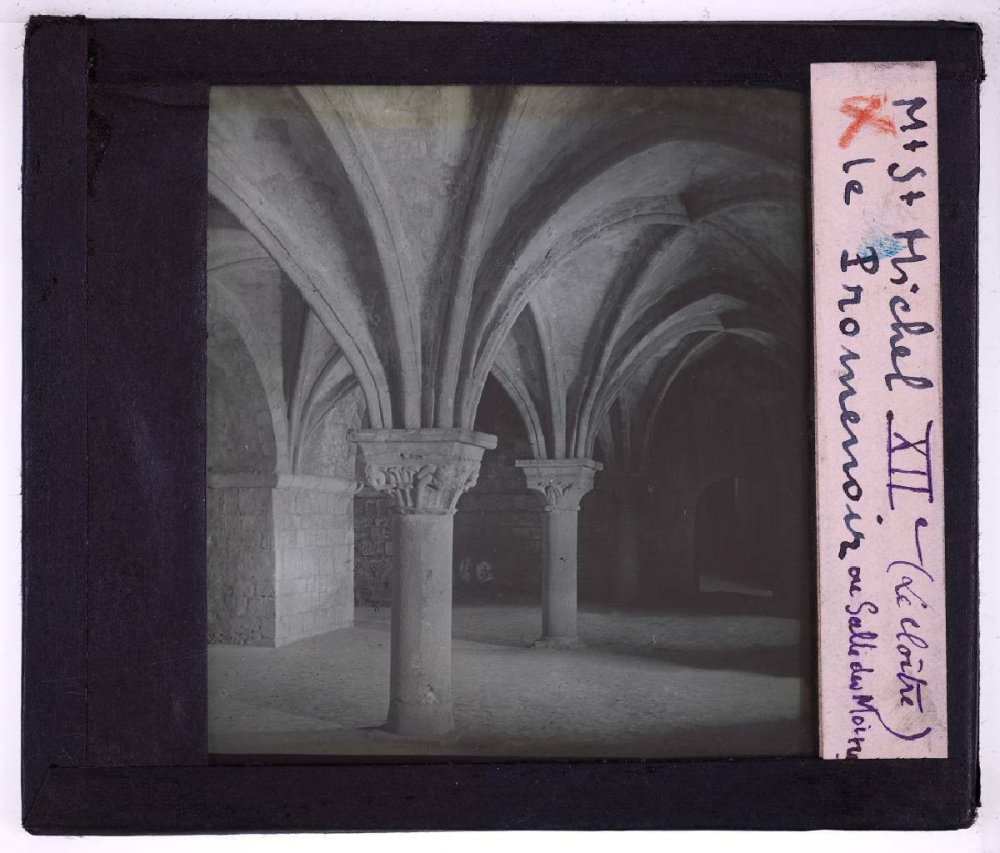 Mt St Michel XIIe (Le cloître)
X le Promenoir ou Salle des Moines